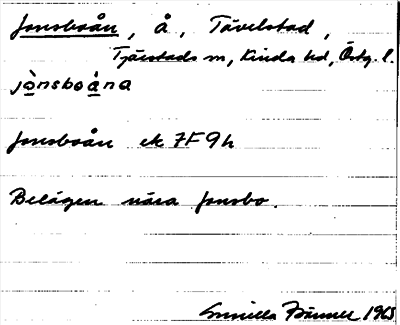 Jonsboån, Å, Tävelstad,
Tjärstads sn, Kinda hd, Östg. l.
jònsboána
Jonsboån ek 7F 9h
Belägen nära Jonsbo.
Gunilla 1965